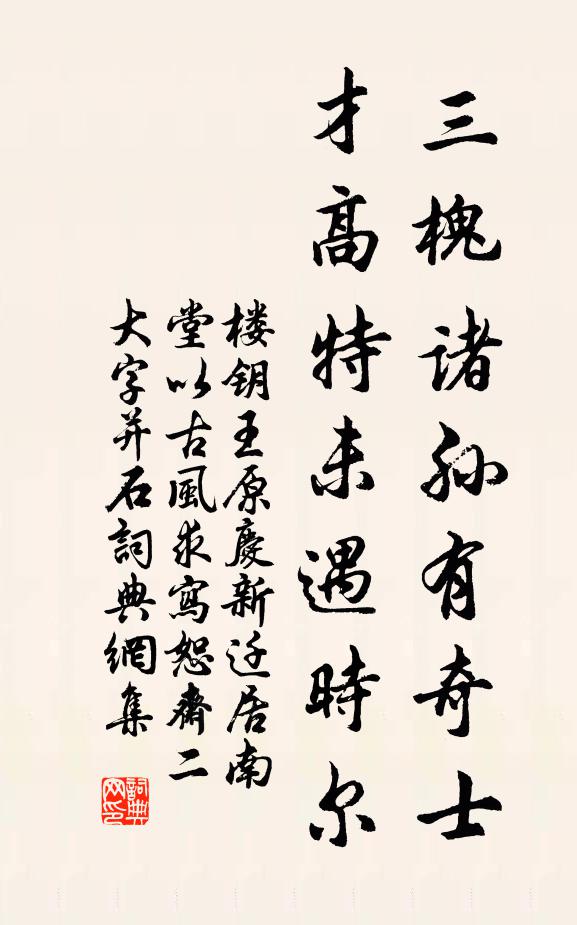 三槐诸孙有奇士
才高特未遇時尔
楼钥王原慶新迁居南
堂以古風求寫恕齋二
大字并石詞典網集
詞典
网印